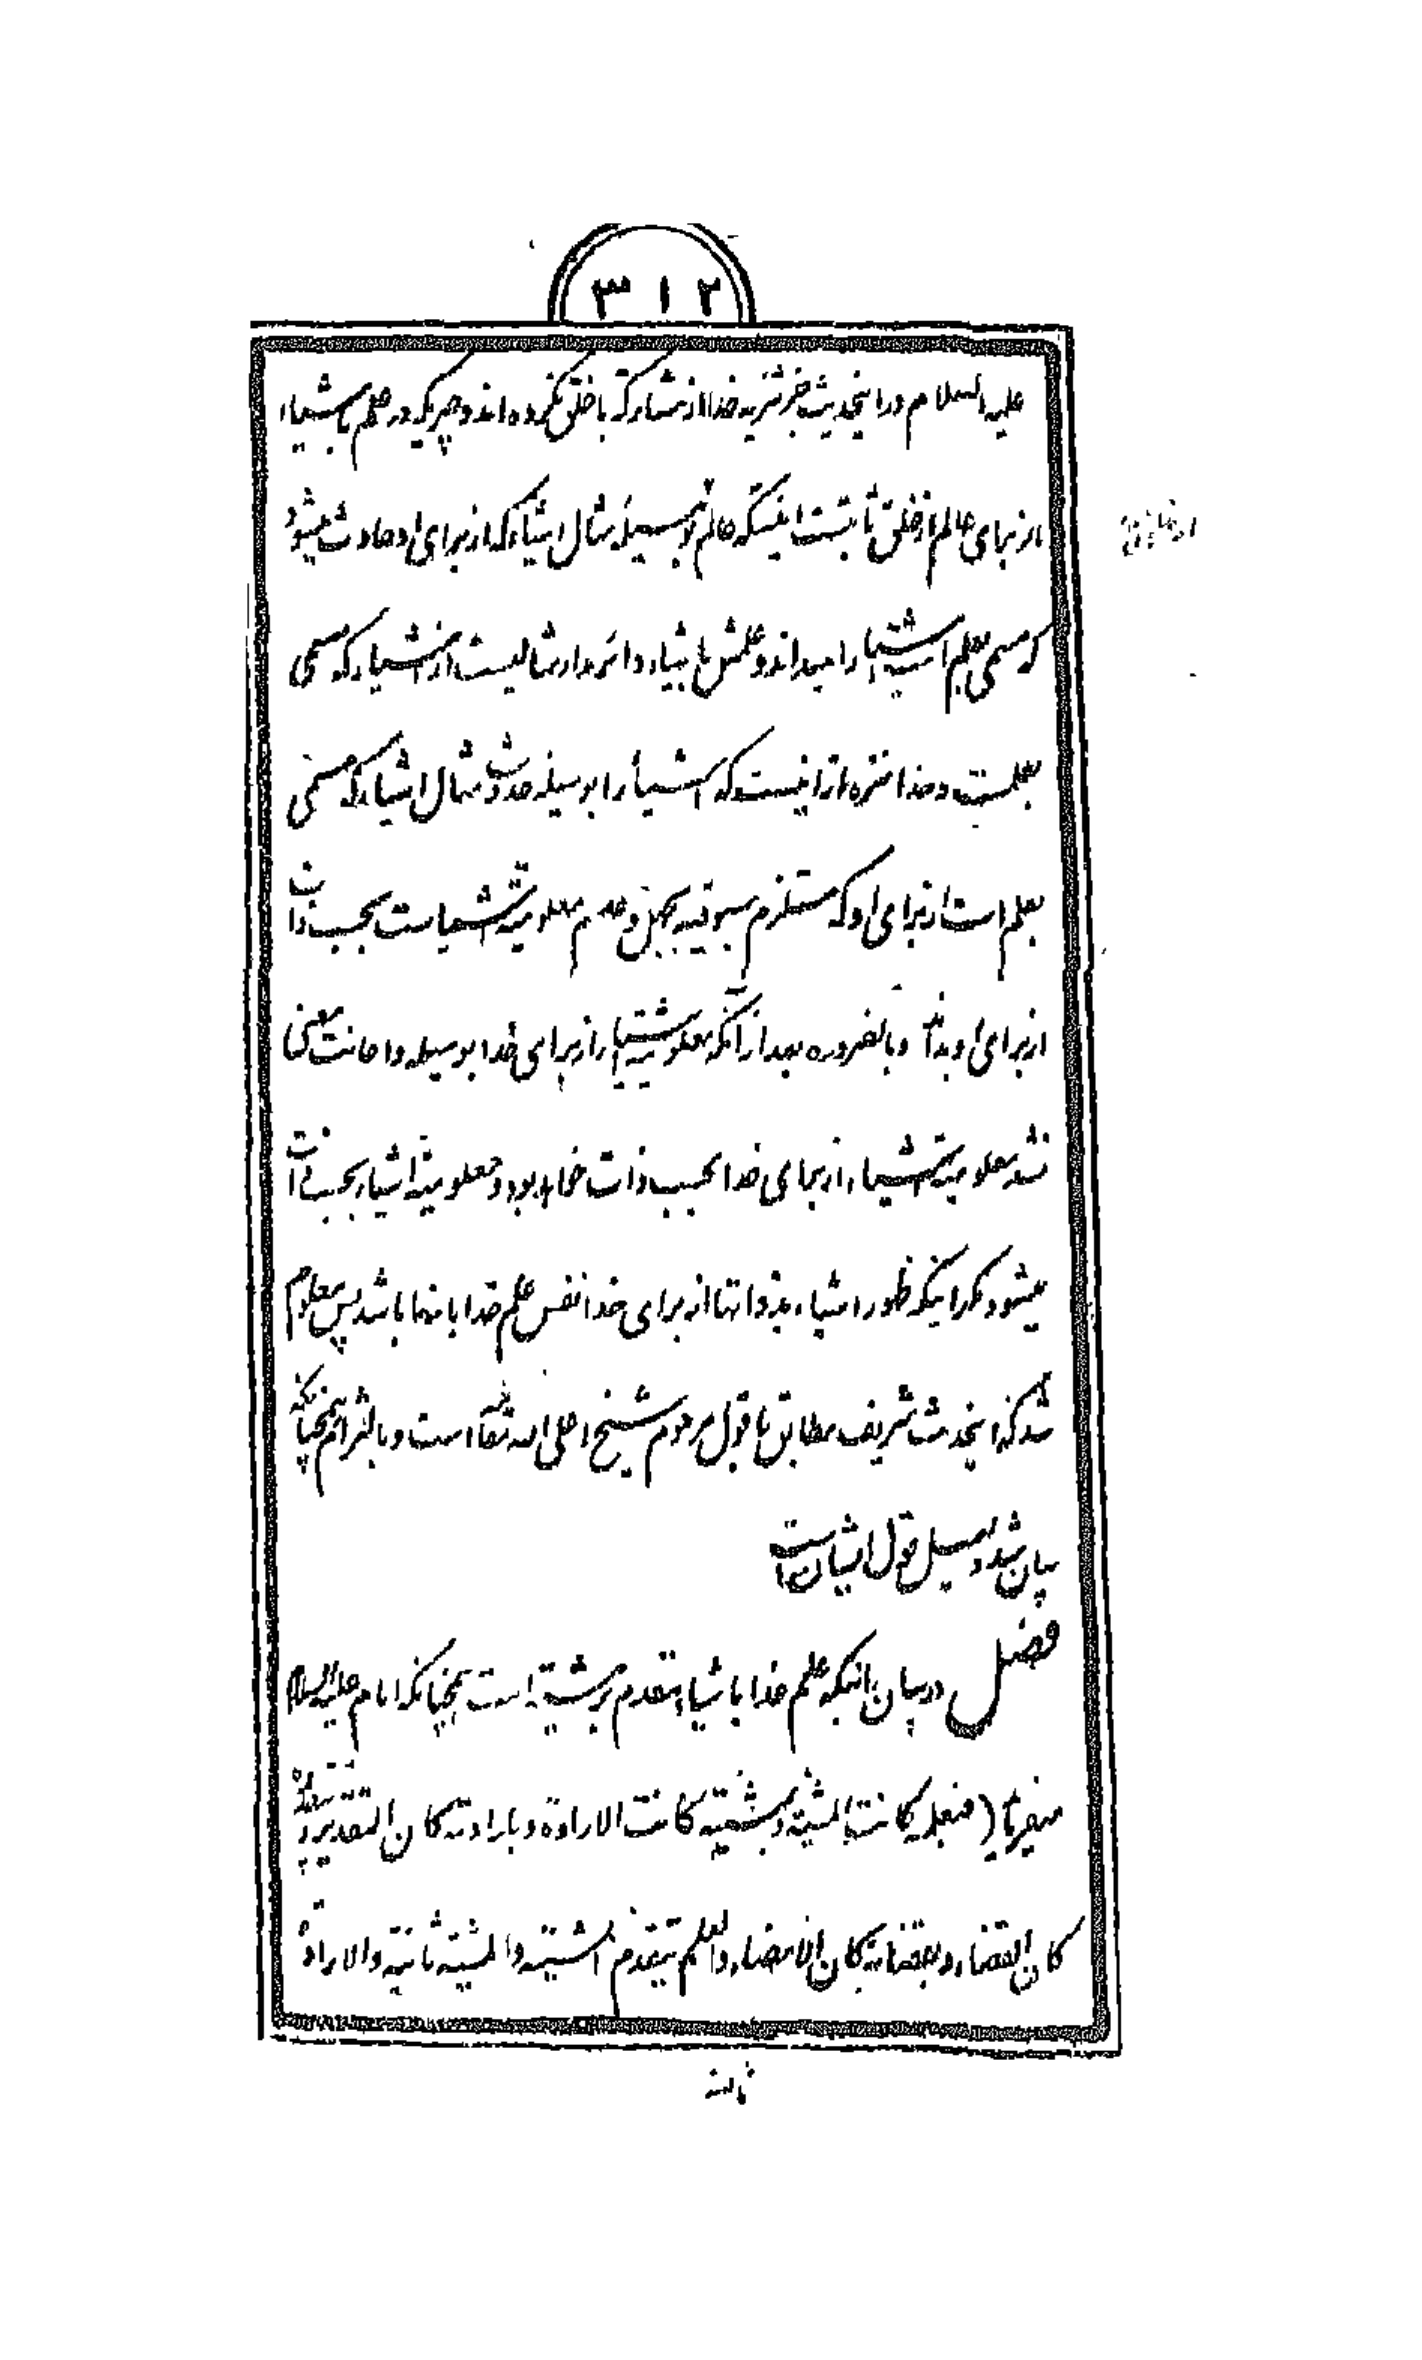 ۳۱۲
علیه السلام در اینحدیث جز تنزیه خدا از مشارکة با خلق نکرده اند و چیزیکه در علم باشیاء
از برای عالم از خلق ثابتست اینستکه عالم بوسیله مثال اشیاء که از برای او حادث میشود
که مسمی بعلم است اشیاء را میداند و علمش باشیاء دائر مدار مثالیست از اشیاء که مسمی
بعلمست و خدا منزه از اینست که اشیاء را بوسیله حدوث مثال اشیاء که مسمی
بعلم است از برای او که مستلزم مسبوقیه بجهل و عدم معلومیة اشیاست بحسب ذات
از برای او بداند و بالضروره بعد از آنکه معلومیة اشیاء از برای خدا بوسیله و اعانت معنی
نشد معلومیة اشیاء از برای خدا بحسب ذات خواهد بود و معلومیة اشیاء بحسب ذات
نمیشود مگر اینکه ظهور اشیاء بذواتها از برای خدا نفس علم خدا بانها باشد پس معلوم
شد که اینحدیث شریف مطابق با قول مرحوم شیخ اعلی الله مقامه است و بالتزام همچنانکه
بیان شد دلیل قول ایشان است
فصل در بیان اینکه علم خدا باشیاء متقدم بر مشیة است همچنانکه امام علیه السلام
میفرماید (فبعلمه کانت المشیة و بمشیته کانت الارادة و بارادته کان التقدیر و بتقدیره
کان القضاء و بقضائه کان الامضاء و العلم متقدم المشیة و المشیة ثانیة و الارادة
ثالثة